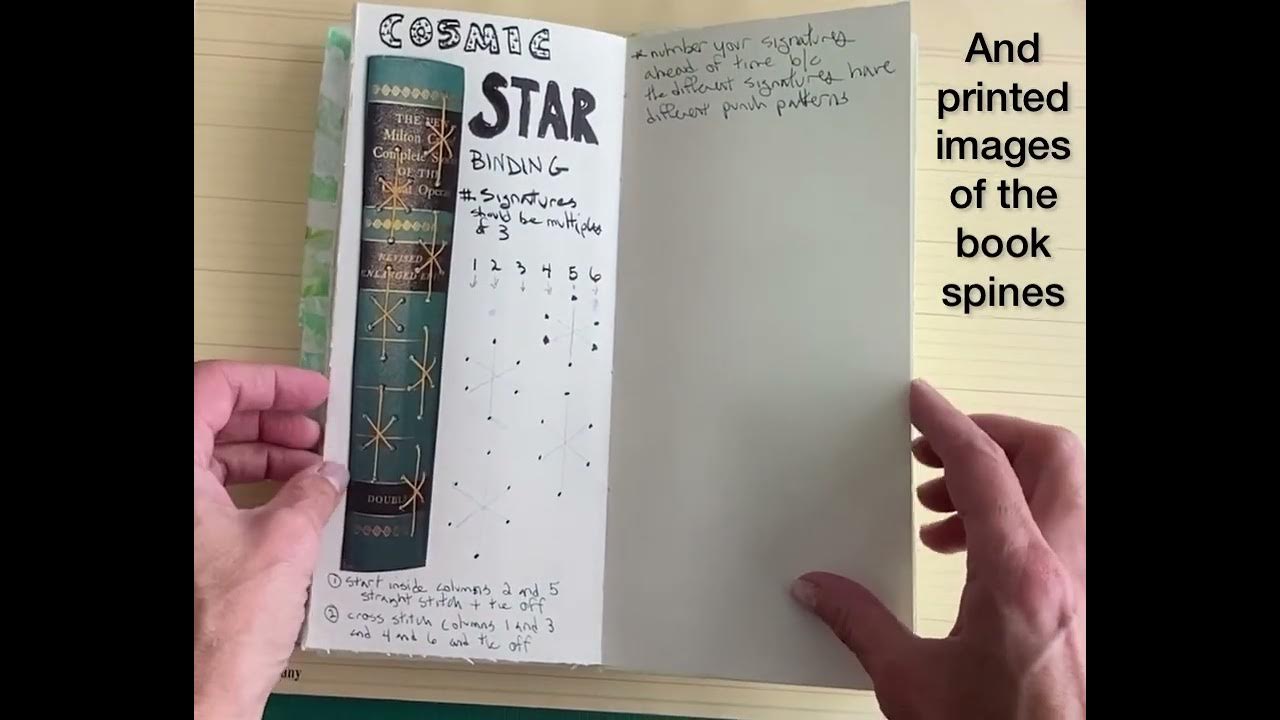 COSMIC
STAR
BINDING
# signatures
should be multiples
of 3
1 2 3 4 5 6
THE NEW
Milton
Complete
OF THE
Opera
REVISED
ENLARGED
DOUBL
① start inside columns 2 and 5
straight stitch + tie off
② cross stitch columns 1 and 3
and 4 and 6 and tie off
* number your signatures
ahead of time b/c
the different signatures have
different punch patterns
And
printed
images
of the
book
spines
any